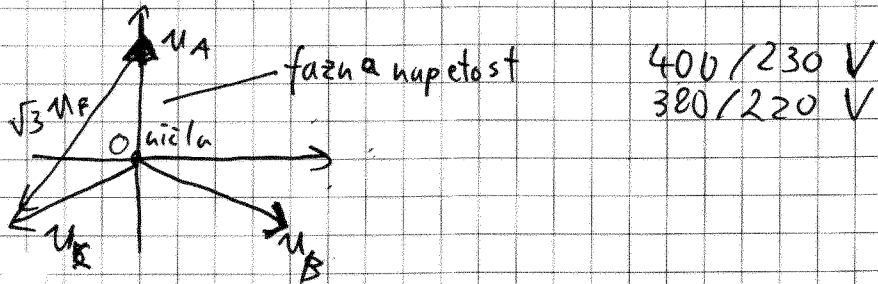 u_A
fazna napetost
400/230 V
380/220 V
√3 u_F
0 ničla
u_C
u_B